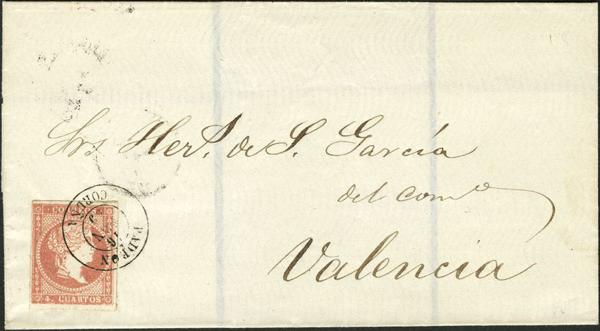 Srs Hers. de S. García
del como
Valencia
CORREOS
PADRON
CORUÑA
4. CUARTOS